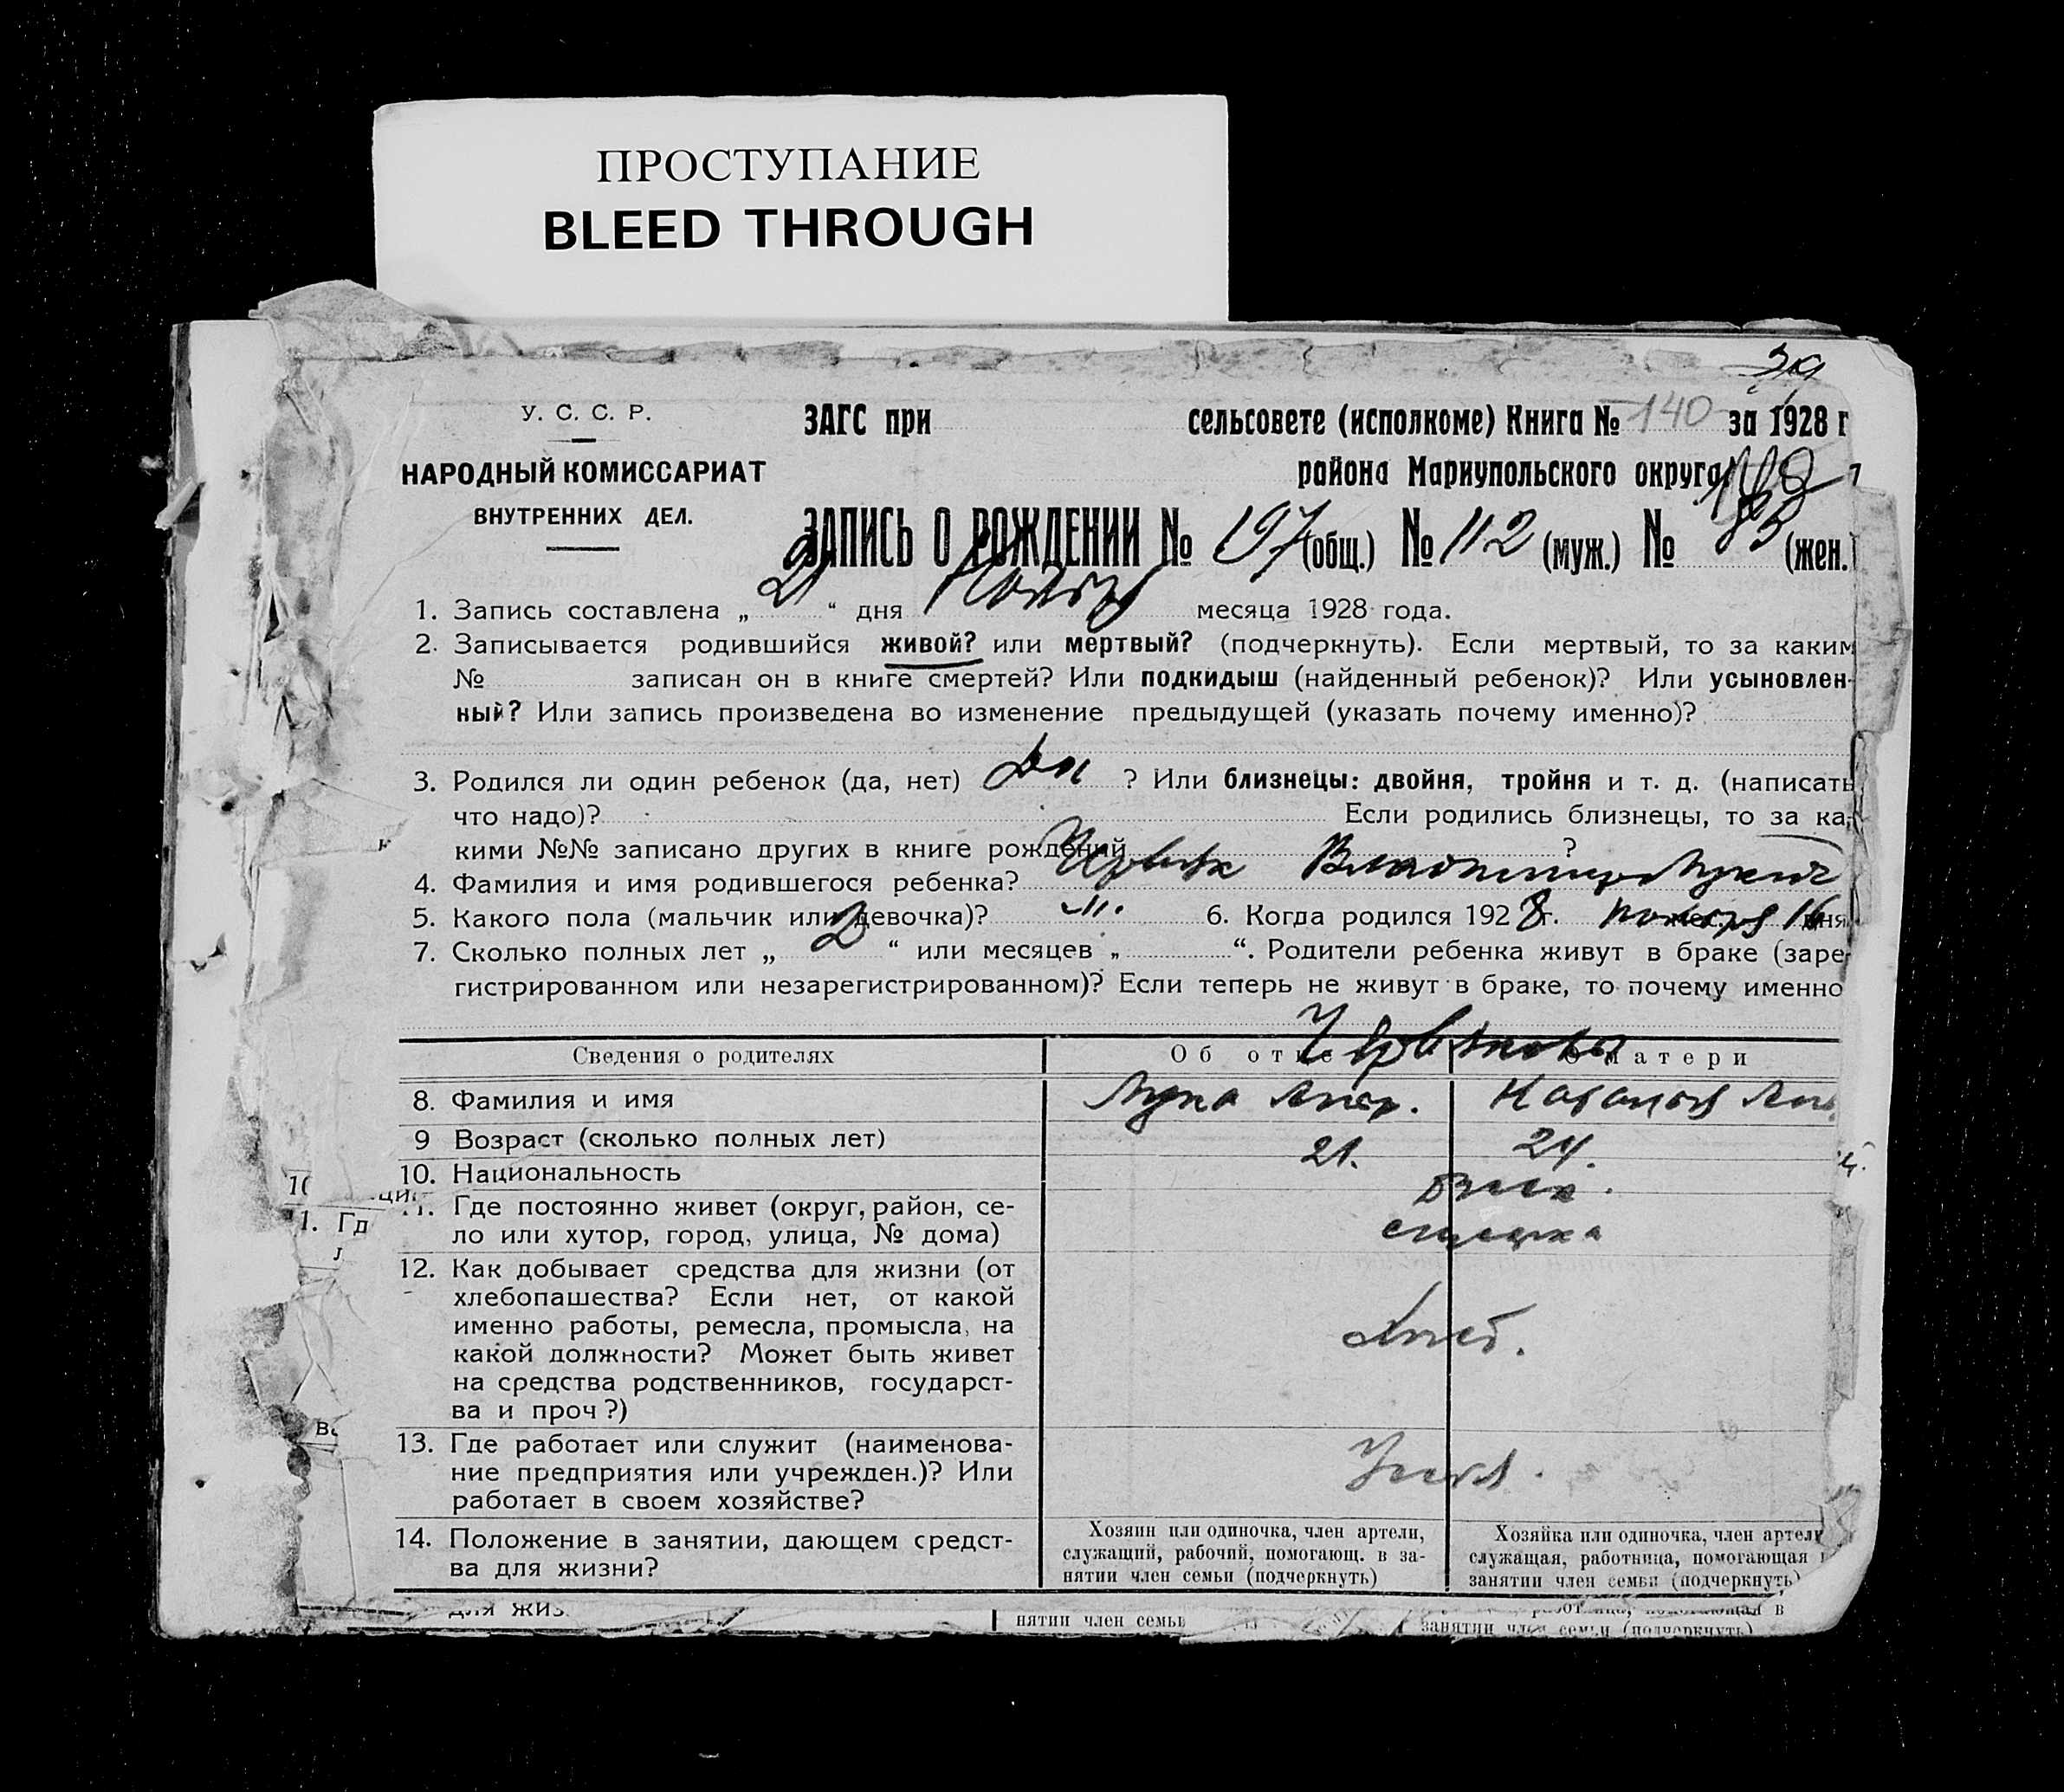 ПРОСТУПАНИЕ
BLEED THROUGH
У. С. С. Р.
НАРОДНЫЙ КОМИССАРИАТ
ВНУТРЕННИХ ДЕЛ.
ЗАГС при сельсовете (исполкоме) Книга № 140 за 1928 г
района Мариупольского округа
ЗАПИСЬ О РОЖДЕНИИ № 197 (общ.) № 112 (муж.) № 85 (жен.)
1. Запись составлена „ 21 “ дня Ноября месяца 1928 года.
2. Записывается родившийся живой? или мертвый? (подчеркнуть). Если мертвый, то за каким
№ записан он в книге смертей? Или подкидыш (найденный ребенок)? Или усыновлен-
ный? Или запись произведена во изменение предыдущей (указать почему именно)?
3. Родился ли один ребенок (да, нет) Да ? Или близнецы: двойня, тройня и т. д. (написать
что надо)? Если родились близнецы, то за ка-
кими №№ записано других в книге рождений ?
4. Фамилия и имя родившегося ребенка? Червяк Владимир Лукич
5. Какого пола (мальчик или девочка)? м. 6. Когда родился 1928 г. ноября мес. 16 дня
7. Сколько полных лет „ 2 “ или месяцев „ “. Родители ребенка живут в браке (заре-
гистрированном или незарегистрированном)? Если теперь не живут в браке, то почему именно
Сведения о родителях Об отце О матери
Червяковы
8. Фамилия и имя Лука
9 Возраст (сколько полных лет) 21. 24.
10. Национальность
11. Где постоянно живет (округ, район, се-
ло или хутор, город, улица, № дома)
12. Как добывает средства для жизни (от
хлебопашества? Если нет, от какой
именно работы, ремесла, промысла, на
какой должности? Может быть живет
на средства родственников, государст-
ва и проч ?)
Хлеб.
13. Где работает или служит (наименова-
ние предприятия или учрежден.)? Или
работает в своем хозяйстве?
14. Положение в занятии, дающем средст-
ва для жизни?
Хозяин или одиночка, член артели,
служащий, рабочий, помогающ. в за-
нятии член семьи (подчеркнуть)
Хозяйка или одиночка, член артели
служащая, работница, помогающая
занятии член семьи (подчеркнуть)
нятии член семьи
занятии член семьи (подчеркнуть)